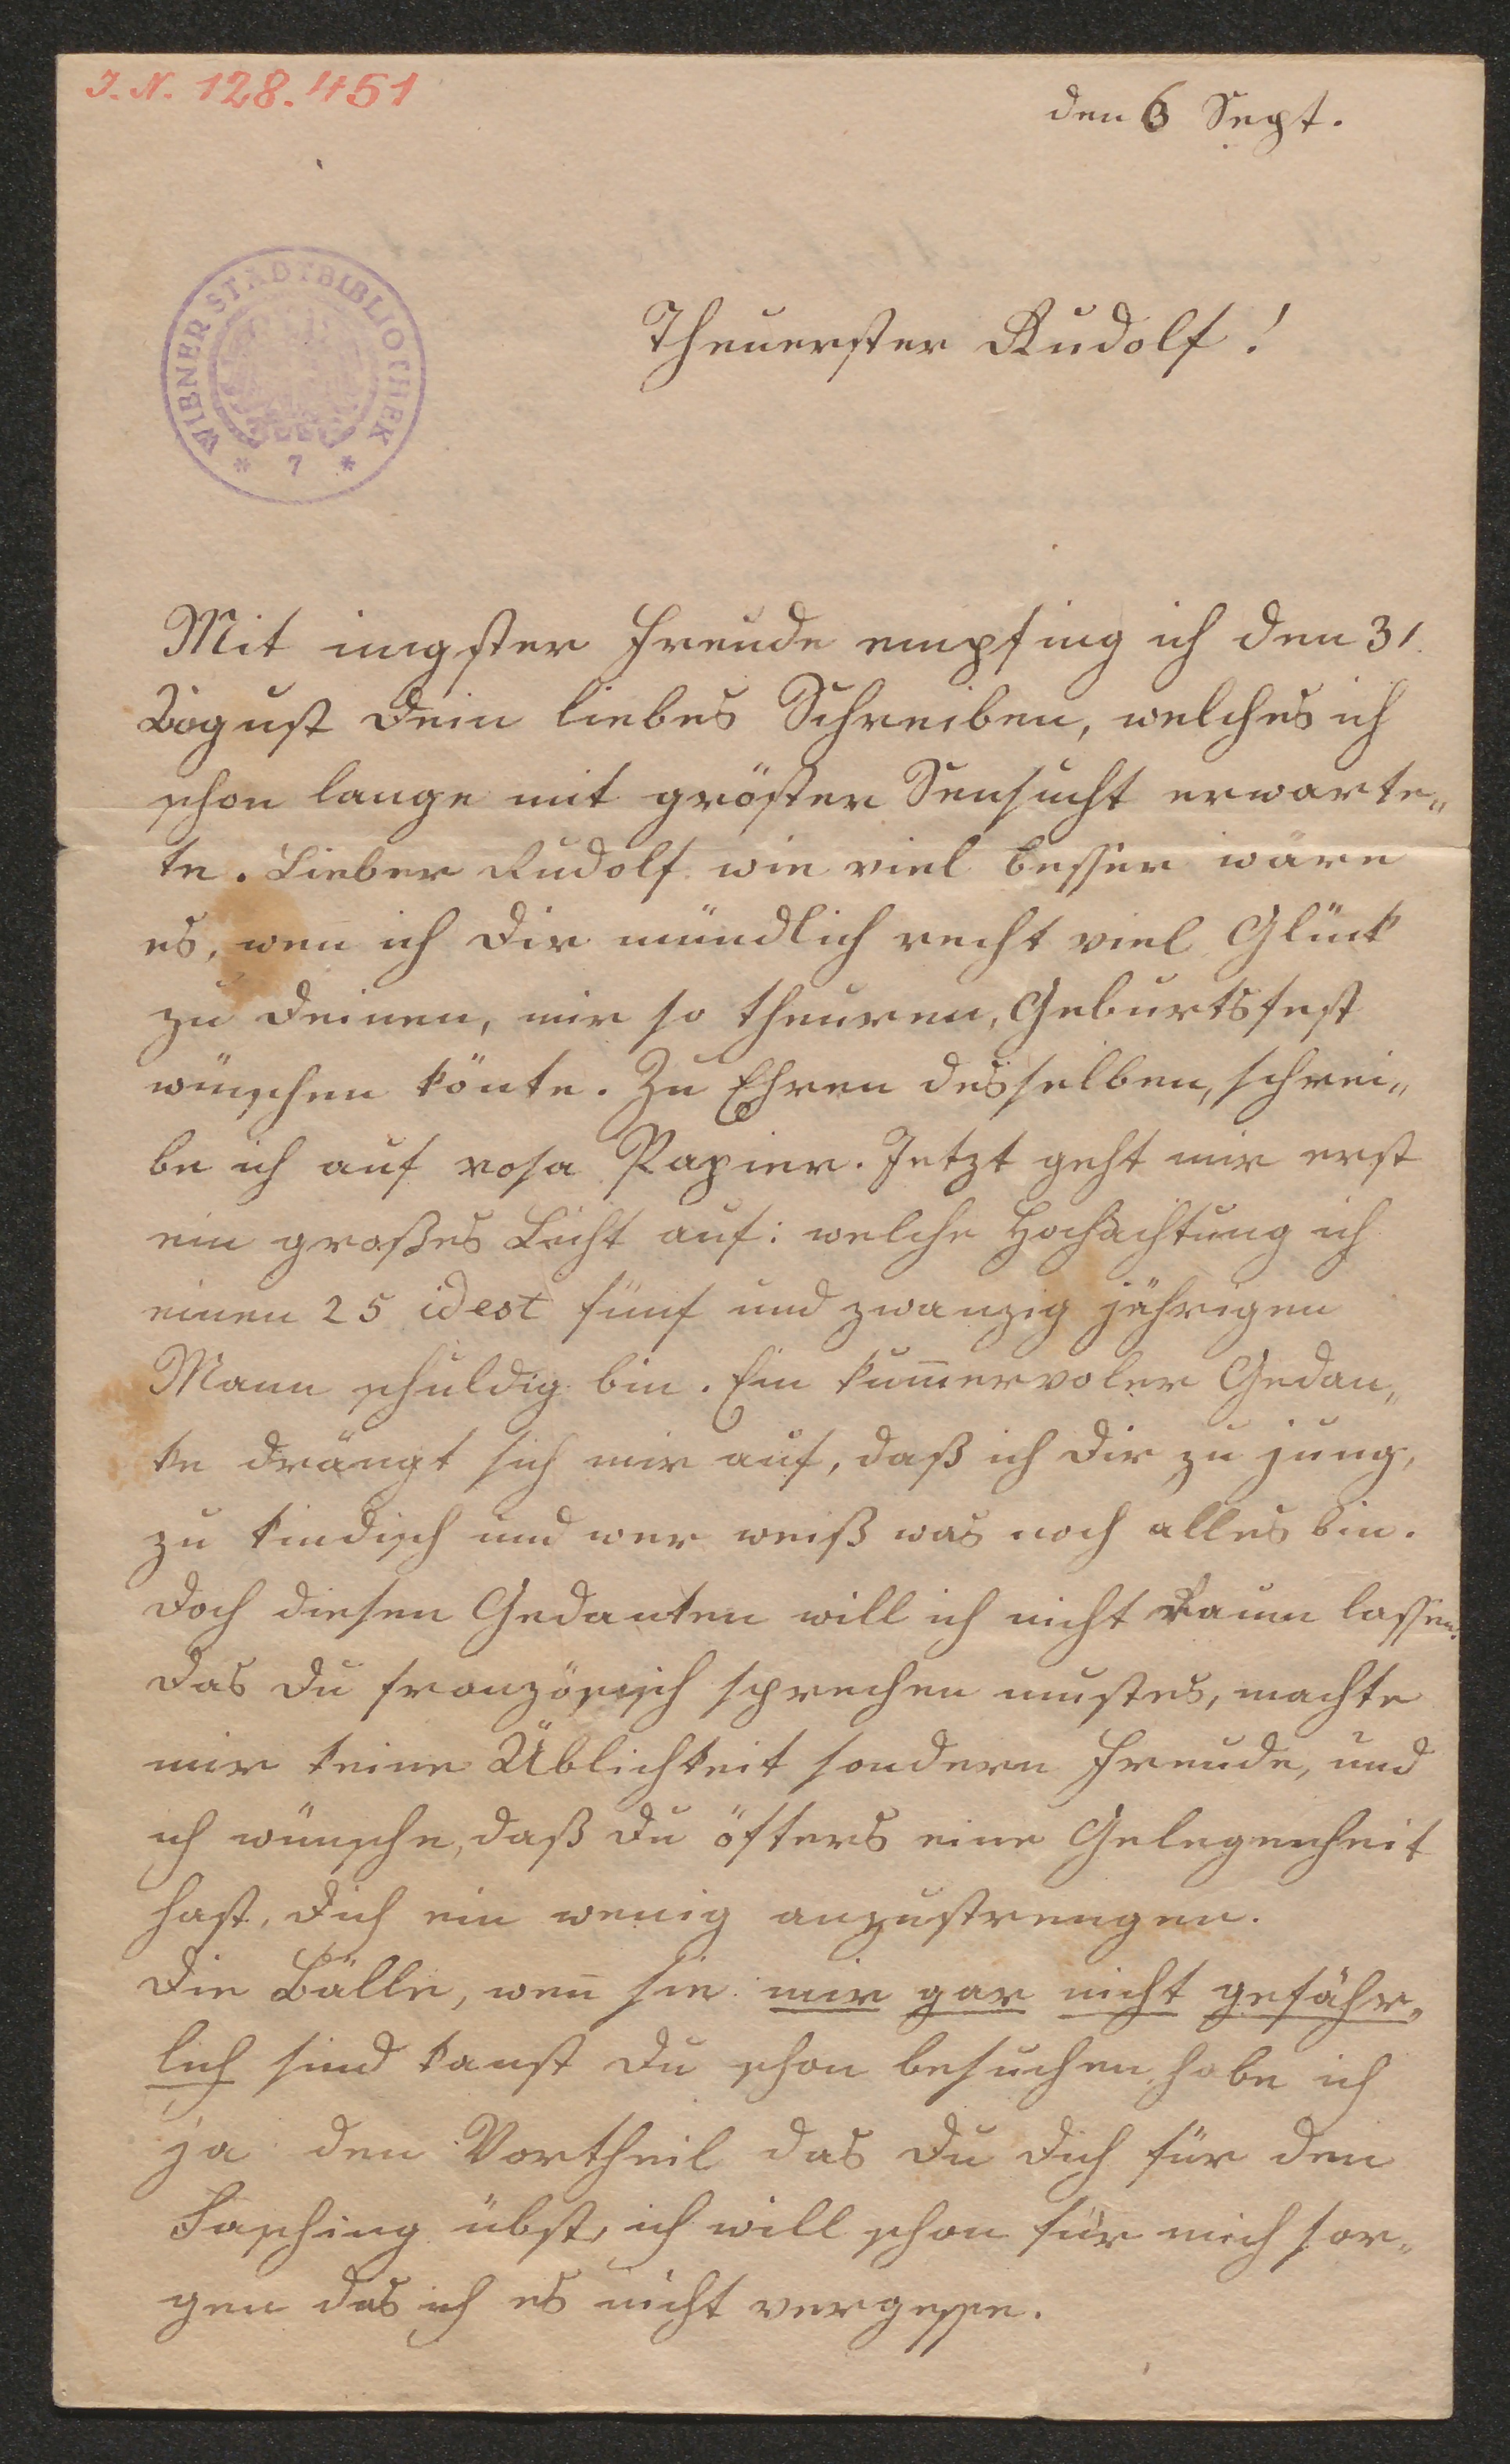 J. N. 128.451
den 6 Sept.
WIENER STADTBIBLIOTHEK
* 7 *
Theuerster Rudolf!
Mit inngster Freude empfing ich den 31.
August Dein liebes Schreiben, welches ich
schon lange mit größter Sensucht erwarte„
te. Lieber Rudolf wie viel besser wäre
es, wen̄ ich Dir mündlich recht viel Glück
zu Deinen, mir so theuren, Geburtsfest
wünschen könte. Zu Ehren desselben, schrei„
be ich auf rosa Papier. Jetzt geht mir erst
ein großes Licht auf: welche Hochachtung ich
einen 25 idest fünf und zwanzig jährigen
Mann schuldig bin. Ein kum̄ervoler Gedan„
ke drängt sich mir auf, daß ich Dir zu jung,
zu kindisch und wer weiß was noch alles bin.
Doch diesen Gedanken will ich nicht Raum lassen.
Das Du französisch sprechen mustes, machte
mir keine Üblichkeit sondern Freude, und
ich wünsche, daß Du öfters eine Gelegenheit
hast, Dich ein wenig anzustrengen.
Die Bälle, wen̄ sie mir gar nicht gefähr„
lich sind kanst Du schon besuchen, habe ich
ja den Vortheil das Du Dich für den
Fasching übst, ich will schon für mich sor„
gen das ich es nicht vergesse.